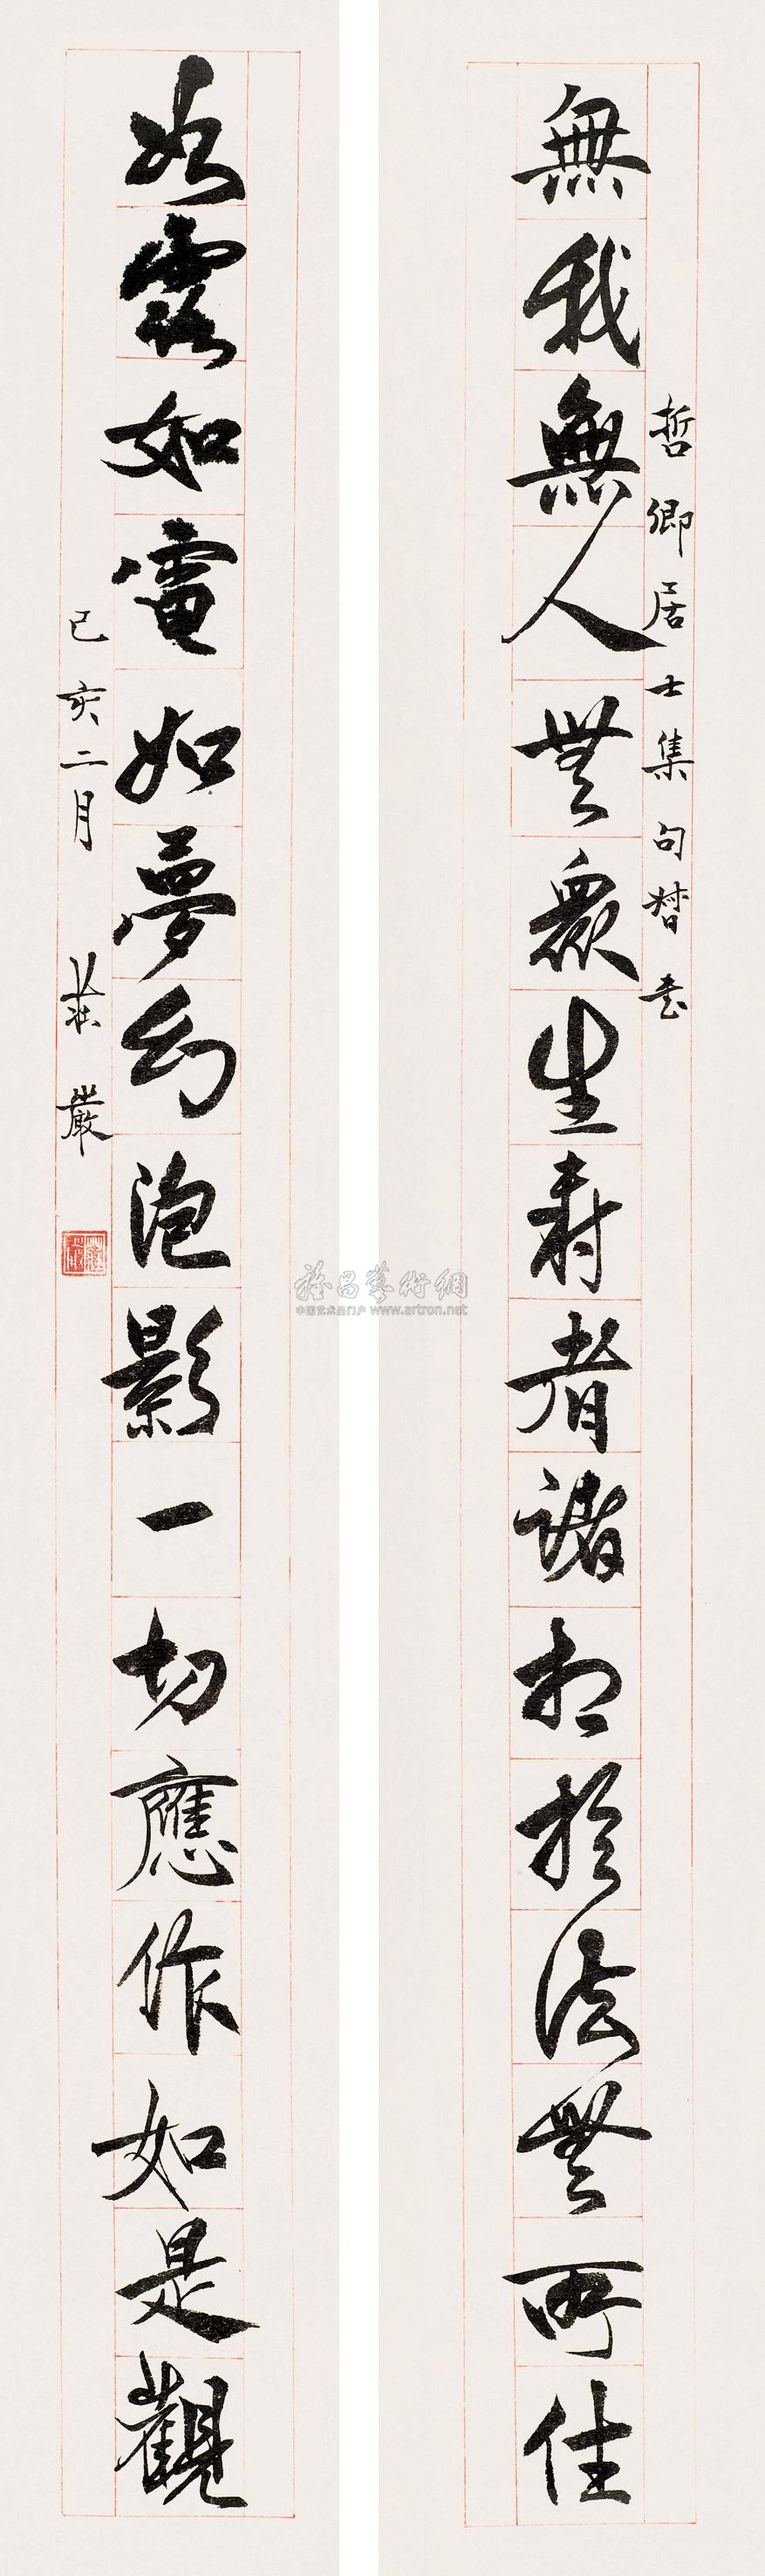 無我無人無眾生壽者諸相於法無所住
哲卿居士集句督書
如露如電如夢幻泡影一切應作如是觀
己亥二月 莊嚴
雅昌藝術網
中国艺术品门户 www.artron.net